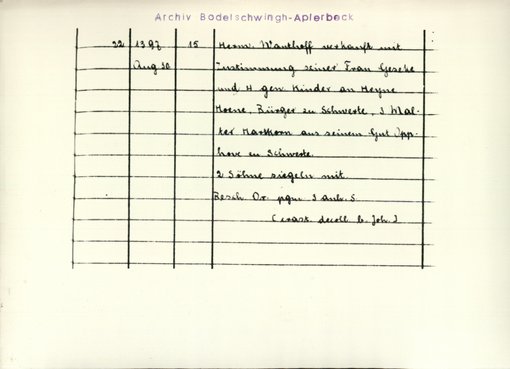 Archiv Bodelschwingh-Aplerbeck
22 1397 15 Herm. Wanthoff verkauft mit
Aug 30 Zustimmung seiner Frau Geseke
und 4 gen Kinder an Heyne
Moene, Bürger zu Schwerte, 3 Mal-
ter Hartkorn aus seinem Gut Opp-
hove zu Schwerte.
2 Söhne siegeln mit
Besch. Or. pgm. 3 anh. S.
(crast. decoll. b. Joh.)